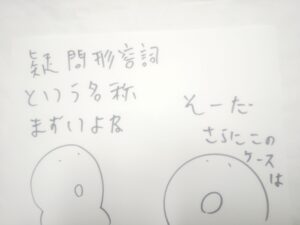 疑問形容詞
という名称
まずいよな
そーだ
さらにこの
ケース
は